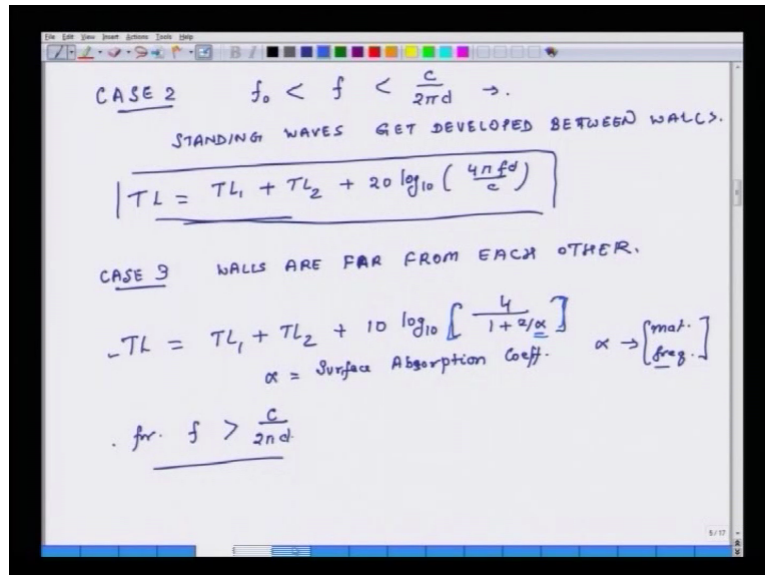 File Edit View Insert Actions Tools Help
CASE 2 f₀ < f < c/2πd →.
STANDING WAVES GET DEVELOPED BETWEEN WALLS.
TL = TL₁ + TL₂ + 20 log₁₀ (4πfd/c)
CASE 3 WALLS ARE FAR FROM EACH OTHER.
TL = TL₁ + TL₂ + 10 log₁₀ [4/(1 + 2/α)]
α = Surface Absorption Coeff. α → [mat. freq.]
. for. f > c/2πd.
5/17